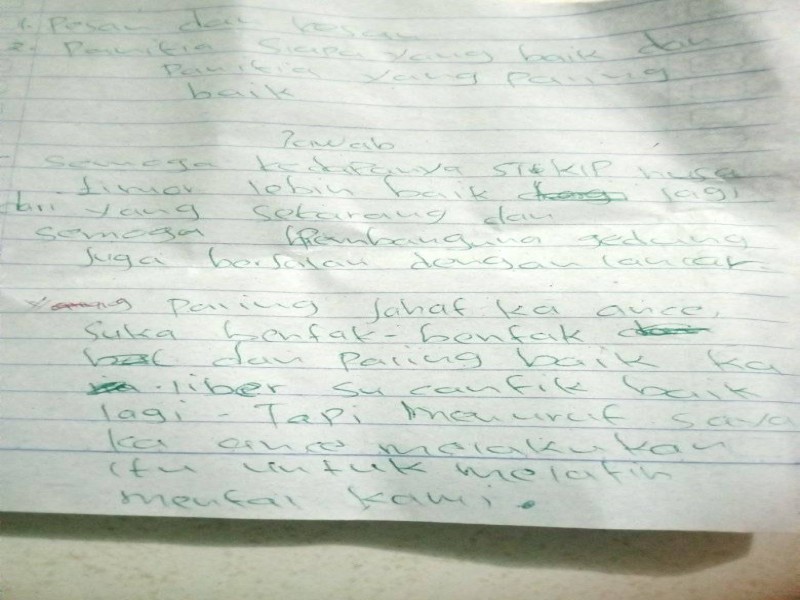 1. Pesan dan kesan
2. Panitia siapa yang baik dan
Panitia yang paling
baik
Jawab
Semoga kedepanya STKIP nusa
timor lebih baik lagi
dri yang sekarang dan
semoga Pembanguna gedung
juga berjalan dengan lancar.
yang paling jahat ka ance,
suka bentak-bentak
dan paling baik ka
liber su cantik baik
lagi - Tapi menurut saya
ka ance melakukan
itu untuk melatih
mental kami.